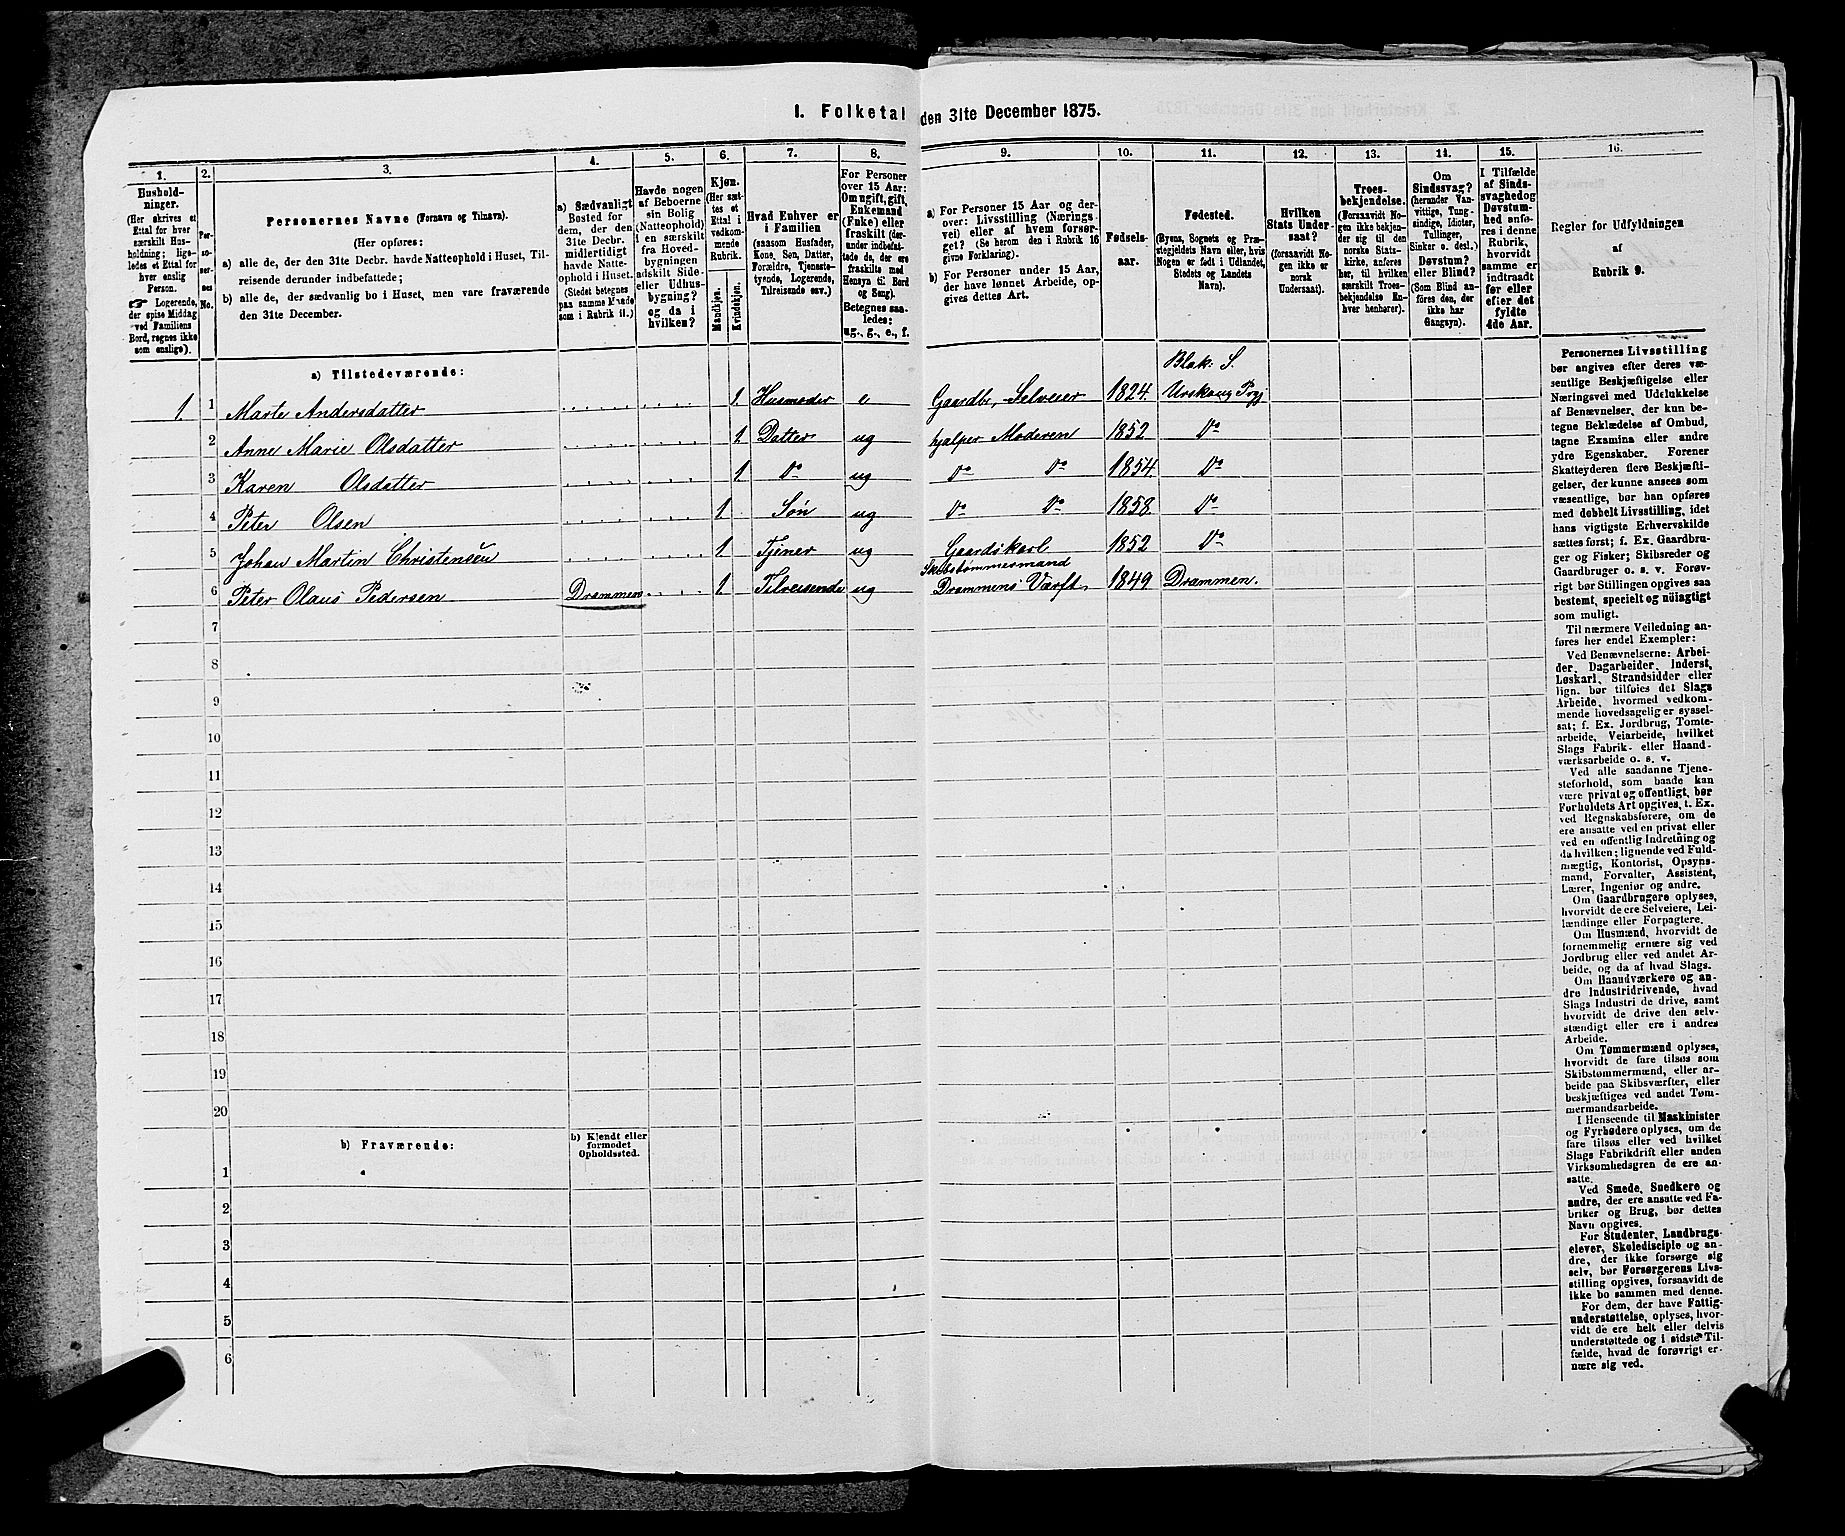 I. Folketal den 31te December 1875.
1.
Hushold-
ninger.
(Her skrives et
Ettal for hver
særskilt Hus-
holdning; lige-
ledes et Ettal for
hver enslig
Person.
☞ Logerende,
der spise Middag
ved Familiens
Bord, regnes ikke
som enslige).
2.
Per-
so-
ner-
nes
No.
3.
Personernes Navne (Fornavn og Tilnavn).
(Her opføres:
a) alle de, der den 31te Decbr. havde Natteophold i Huset, Til-
reisende derunder indbefattede;
b) alle de, der sædvanlig bo i Huset, men vare fraværende
den 31te December.
4.
a) Sædvanligt
Bosted for
dem, der den
31te Decbr.
midlertidigt
havde Natte-
ophold i Huset.
(Stedet betegnes
paa samme Maade
som i Rubrik 11.)
5.
Havde nogen
af Beboerne
sin Bolig
(Natteophold)
i en særskilt
fra Hoved-
bygningen
adskilt Side-
eller Udhus-
bygning?
og da i
hvilken?
6.
Kjøn.
(Her sæt-
tes et
Ettal i
vedkom-
mende
Rubrik.
Mandkjøn.
Kvindekjøn.
7.
Hvad Enhver er
i Familien
(saasom Husfader,
Kone, Søn, Datter,
Forældre, Tjeneste-
tyende, Logerende,
Tilreisende osv.)
8.
For Personer
over 15 Aar:
Om ugift, gift,
Enkemand
(Enke) eller
fraskilt (der-
under indbefat-
tede de, der ere
fraskilte med
Hensyn til Bord
og Seng).
Betegnes saa-
ledes:
ug., g., e., f.
9.
a) For Personer 15 Aar og der-
over: Livsstilling (Nærings-
vei) eller af hvem forsør-
get? (Se herom den i Rubrik 16
givne Forklaring).
b) For Personer under 15 Aar,
der have lønnet Arbeide, op-
gives dettes Art.
10.
Fødsels-
aar.
11.
Fødested.
(Byens, Sognets og Præ-
stegjeldets Navn eller, hvis
Nogen er født i Udlandet,
Stedets og Landets
Navn).
12.
Hvilken
Stats Under-
saat?
(forsaavidt No-
gen ikke er
norsk
Undersaat).
13.
Troes-
bekjendelse.
(Forsaavidt No-
gen ikke bekjen-
der sig til den
norske Stats-
kirke, anføres
her, til hvilken
særskilt Troes-
bekjendelse En-
hver henhører).
14.
Om
Sindssvag?
(herunder Van-
vittige, Tung-
sindige, Idioter,
Tullinger,
Sinker o. desl.)
Døvstum?
eller Blind?
(Som Blind an-
føres den, der
ikke har
Gangsyn).
15.
I Tilfælde
af Sinds-
svaghed og
Døvstum-
hed anfø-
res i denne
Rubrik,
hvorvidt
samme er
indtraadt
før eller
efter det
fyldte
4de Aar.
16.
Regler for Udfyldningen
af
Rubrik 9.
a) Tilstedeværende:
Blak: S.
1 1 Marte Andersdatter 1 Husmoder e Gaardbr, Selveier 1824. Urskoug Prgj
2 Anne Marie Olsdatter 1 Datter ug hjælper Moderen 1852 Do
3 Karen Olsdatter 1 Do ug Do Do 1854. Do
4 Peter Olsen 1 Søn ug Do Do 1858. Do
5 Johan Martin Christensen 1 Tjener ug Gaardskarl 1852 Do
Skibstømmermand
6 Peter Olaus Pedersen Drammen 1 Tilreisende ug Drammens Værft. 1849 Drammen.
7
8
9
10
11
12
13
14
15
16
17
18
19
20
b) Fraværende:
b) Kjendt eller
formodet
Opholdssted.
1
2
3
4
5
6
Personernes Livsstilling
bør angives efter deres væ-
sentlige Beskjæftigelse eller
Næringsvei med Udelukkelse
af Benævnelser, der kun be-
tegne Beklædelse af Ombud,
tagne Examina eller andre
ydre Egenskaber. Forener
Skatteyderen flere Beskjæfti-
gelser, der kunne ansees som
væsentlige, bør han opføres
med dobbelt Livsstilling, idet
hans vigtigste Erhvervskilde
sættes først; f. Ex. Gaardbru-
ger og Fisker; Skibsreder og
Gaardbruger o. s. v. Forøv-
rigt bør Stillingen opgives saa
bestemt, specielt og nøiagtigt
som muligt.
Til nærmere Veiledning an-
føres her endel Exempler:
Ved Benævnelserne: Arbei-
der, Dagarbeider, Inderst,
Løskarl, Strandsidder eller
lign. bør tilføies det Slags
Arbeide, hvormed vedkom-
mende hovedsagelig er syssel-
sat; f. Ex. Jordbrug, Tomte-
arbeide, Veiarbeide, hvilket
Slags Fabrik- eller Haand-
værksarbeide o. s. v.
Ved alle saadanne Tjene-
steforhold, som baade kan
være privat og offentligt, bør
Forholdets Art opgives, t. Ex.
ved Regnskabsførere, om de
ere ansatte ved en privat eller
ved en offentlig Indretning og
da hvilken; lignende ved Fuld-
mægtig, Kontorist, Opsyns-
mand, Forvalter, Assistent,
Lærer, Ingeniør og andre.
Om Gaardbrugere oplyses,
hvorvidt de ere Selveiere, Lei-
lændinge eller Forpagtere.
Om Husmænd, hvorvidt de
fornemmelig ernære sig ved
Jordbrug eller ved andet Ar-
beide, og da af hvad Slags.
Om Haandværkere og an-
dre Industridrivende, hvad
Slags Industri de drive, samt
hvorvidt de drive den selv-
stændigt eller ere i andres
Arbeide.
Om Tømmermænd oplyses,
hvorvidt de fare tilsøs som
Skibstømmermænd, eller ar-
beide paa Skibsværfter, eller
beskjæftiges ved andet Tøm-
mermandsarbeide.
I Henseende til Maskinister
og Fyrbødere oplyses, om de
fare tilsøs eller ved hvilket
Slags Fabrikdrift eller anden
Virksomhedsgren de ere an-
satte.
Ved Smede, Snedkere og
andre, der ere ansatte ved Fa-
briker og Brug, bør dettes
Navn opgives.
For Studenter, Landbrugs-
elever, Skoledisciple og an-
dre, der ikke forsørge sig
selv, bør Forsørgerens Livs-
stilling opgives, forsaavidt de
ikke bo sammen med denne.
For dem, der have Fattig-
understøttelse, oplyses, hvor-
vidt de ere helt eller delvis
understøttede og i sidste Til-
fælde, hvad de forøvrigt er-
nære sig ved.